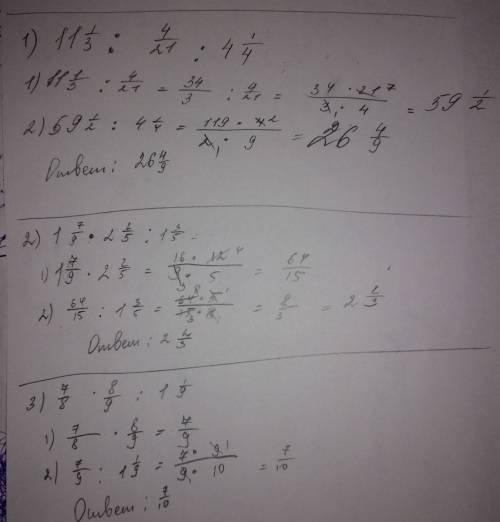 1) 11 1/3 : 4/21 : 4 1/4
1) 11 1/3 : 4/21 = 34/3 : 4/21 = 34 · 21 7/3 1 · 4 = 59 1/2
2) 59 1/2 : 4 = 119 · 2/2 1 · 9 = 26 4/9
Ответ: 26 4/9
2) 1 7/9 · 2 2/5 : 1 3/5 =
1) 1 7/9 · 2 2/5 = 16 · 12 4/9 3 · 5 = 64/15
2) 64/15 : 1 3/5 = 64 8 · 5 1/15 3 · 8 1 = 8/3 = 2 2/3
Ответ: 2 2/3
3) 7/8 · 8/9 : 1 1/9
1) 7/8 · 8/9 = 7/9
2) 7/9 : 1 1/9 = 7 · 9 1/9 1 · 10 = 7/10
Ответ: 7/10